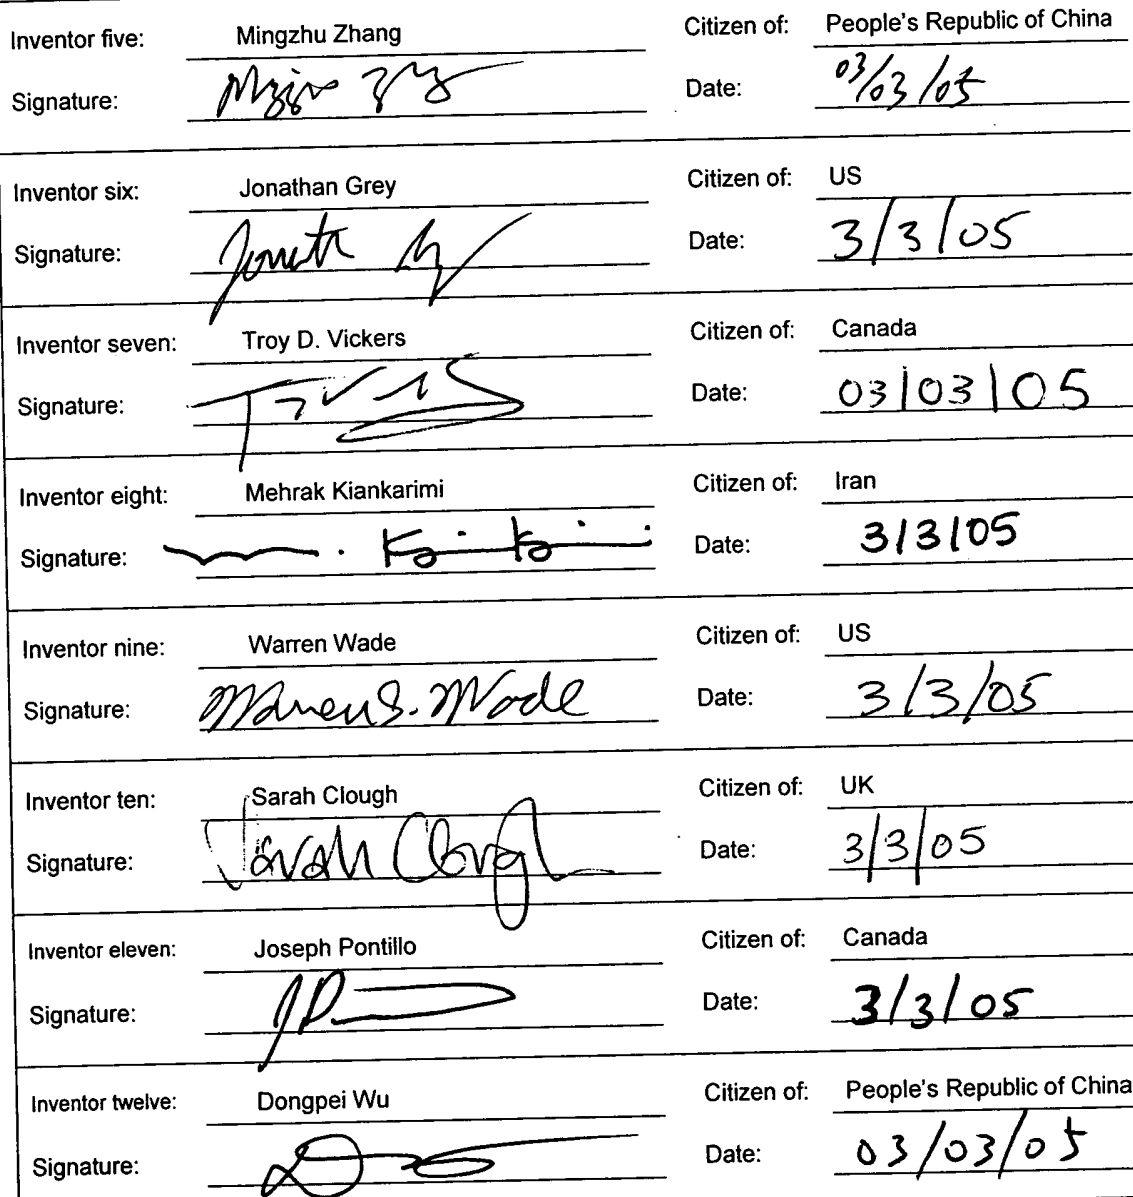 Inventor five: Mingzhu Zhang Citizen of: People's Republic of China
Signature: Date: 03/03/05
Inventor six: Jonathan Grey Citizen of: US
Signature: Date: 3/3/05
Inventor seven: Troy D. Vickers Citizen of: Canada
Signature: Date: 03/03/05
Inventor eight: Mehrak Kiankarimi Citizen of: Iran
Signature: Date: 3/3/05
Inventor nine: Warren Wade Citizen of: US
Signature: Warren S. Wade Date: 3/3/05
Inventor ten: Sarah Clough Citizen of: UK
Signature: Sarah Clough Date: 3/3/05
Inventor eleven: Joseph Pontillo Citizen of: Canada
Signature: Date: 3/3/05
Inventor twelve: Dongpei Wu Citizen of: People's Republic of China
Signature: Date: 03/03/05